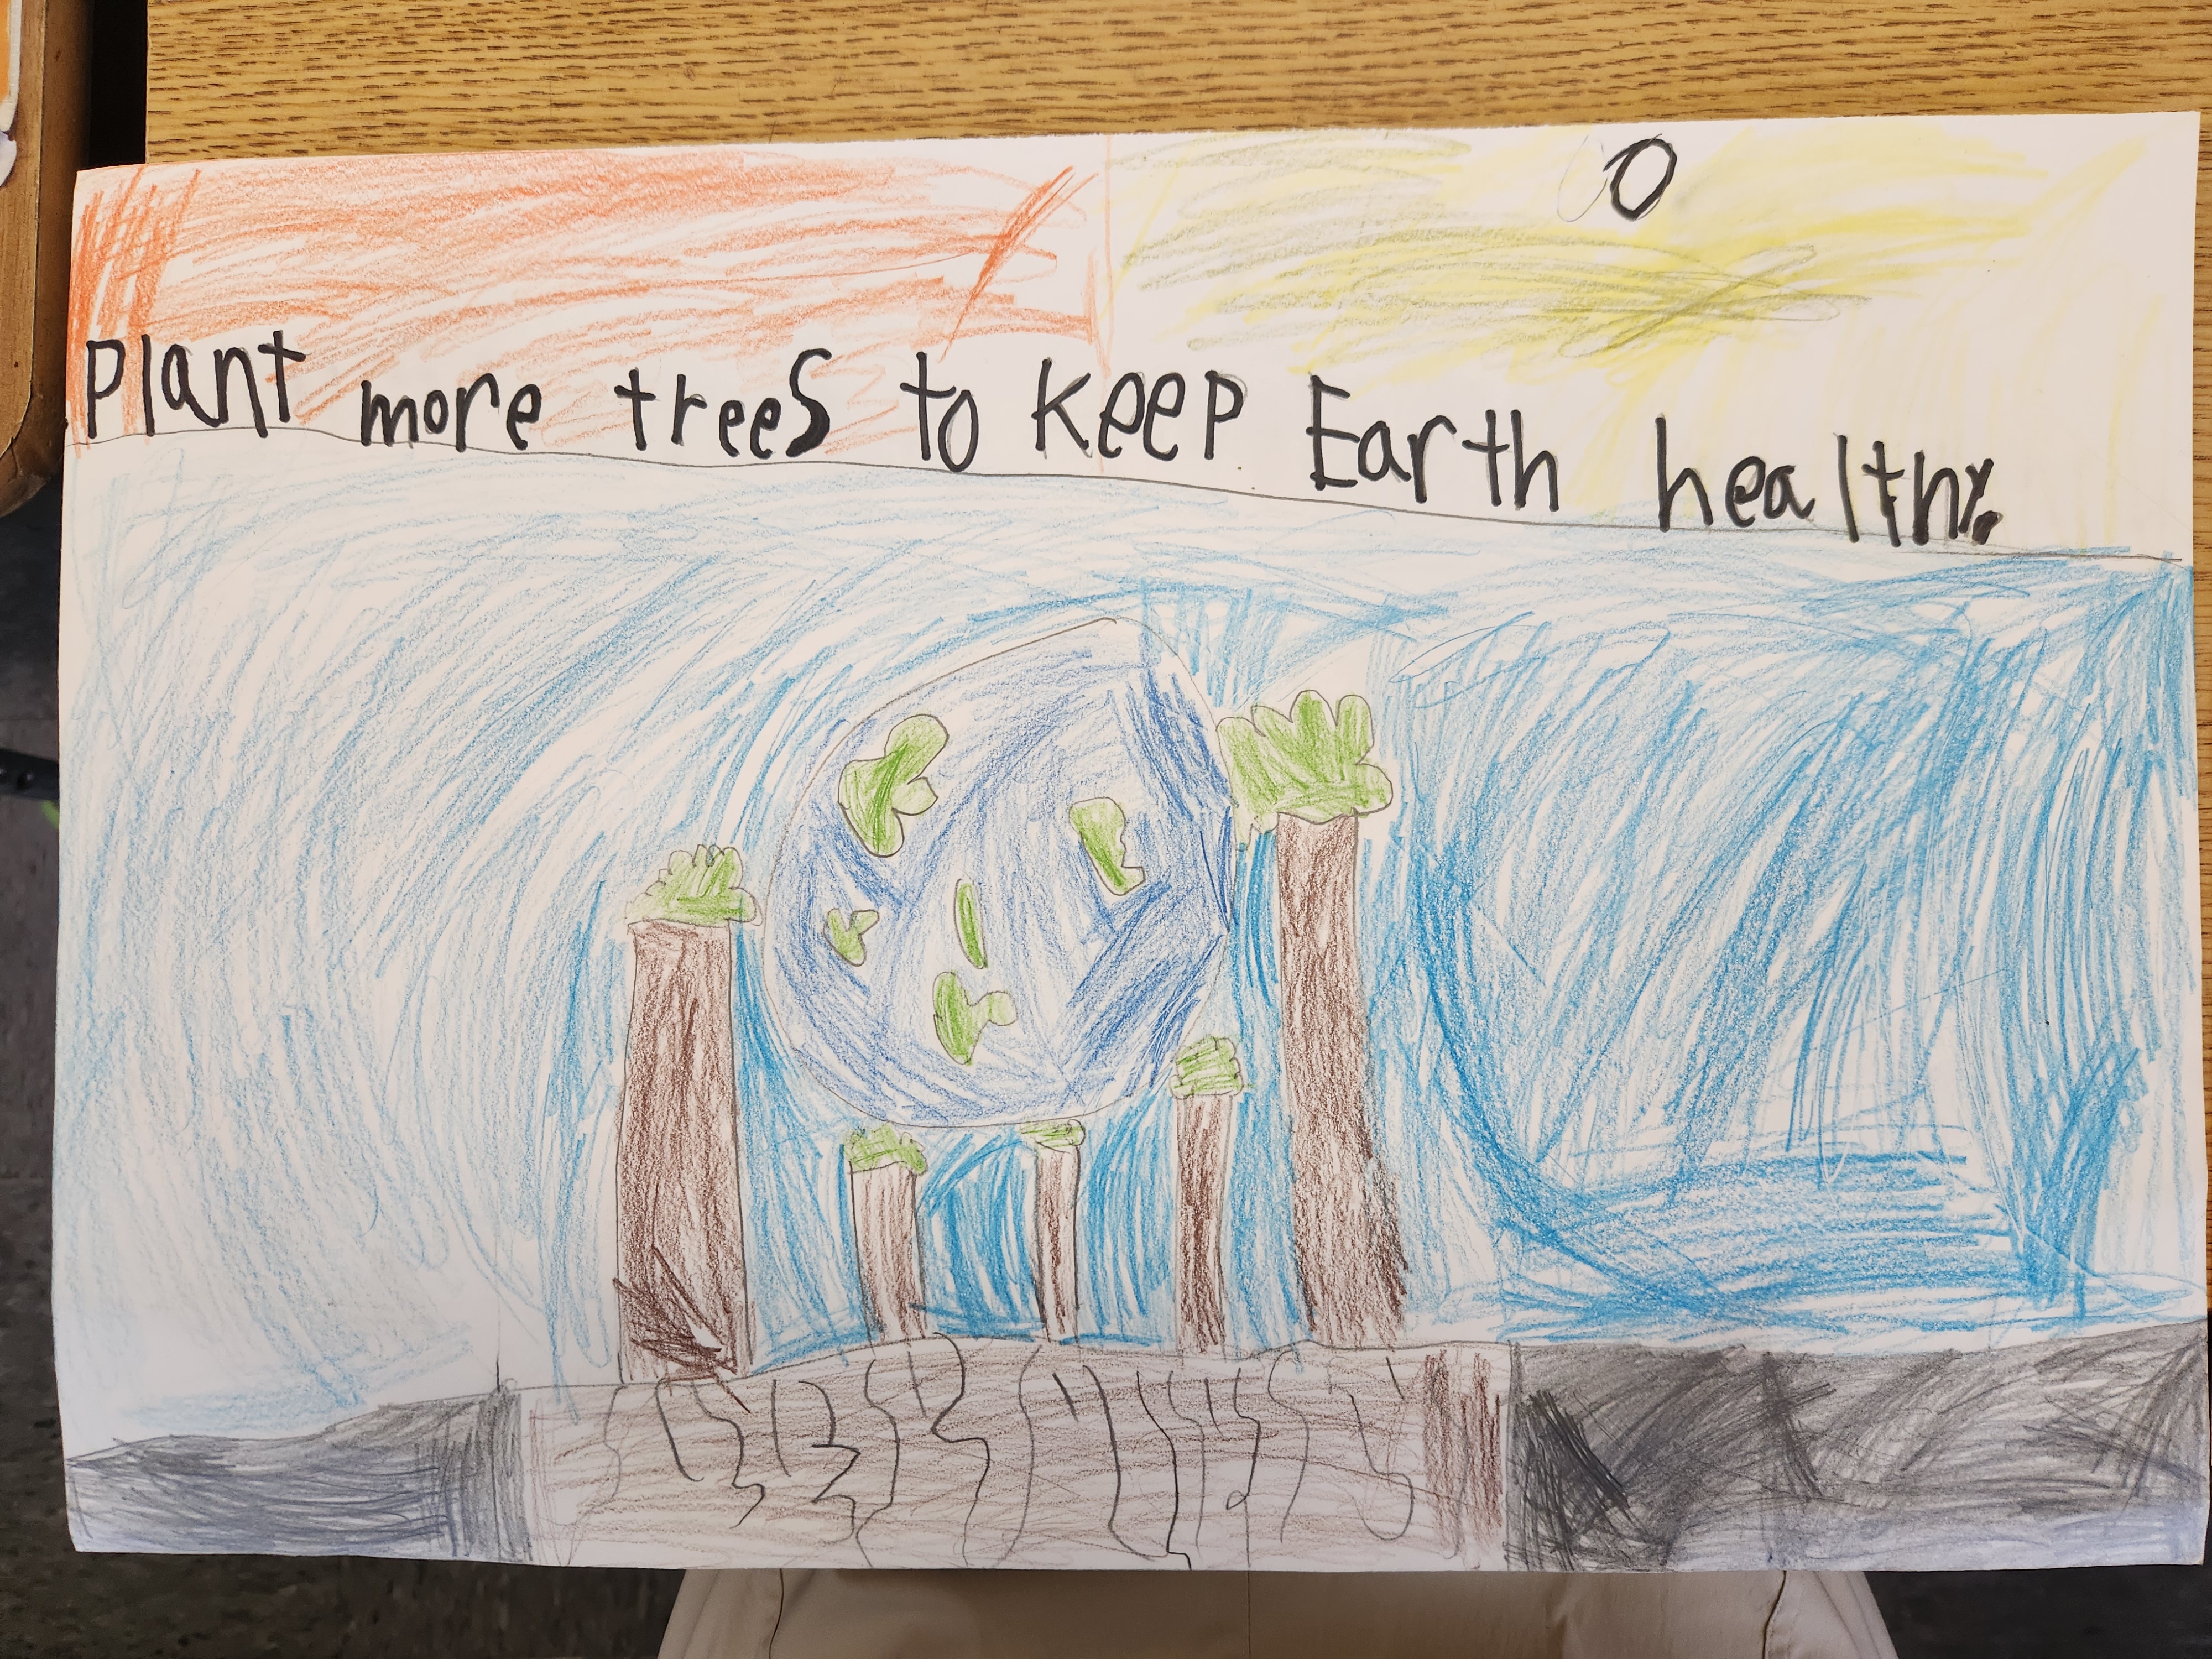 Plant more trees to keep Earth healthy.